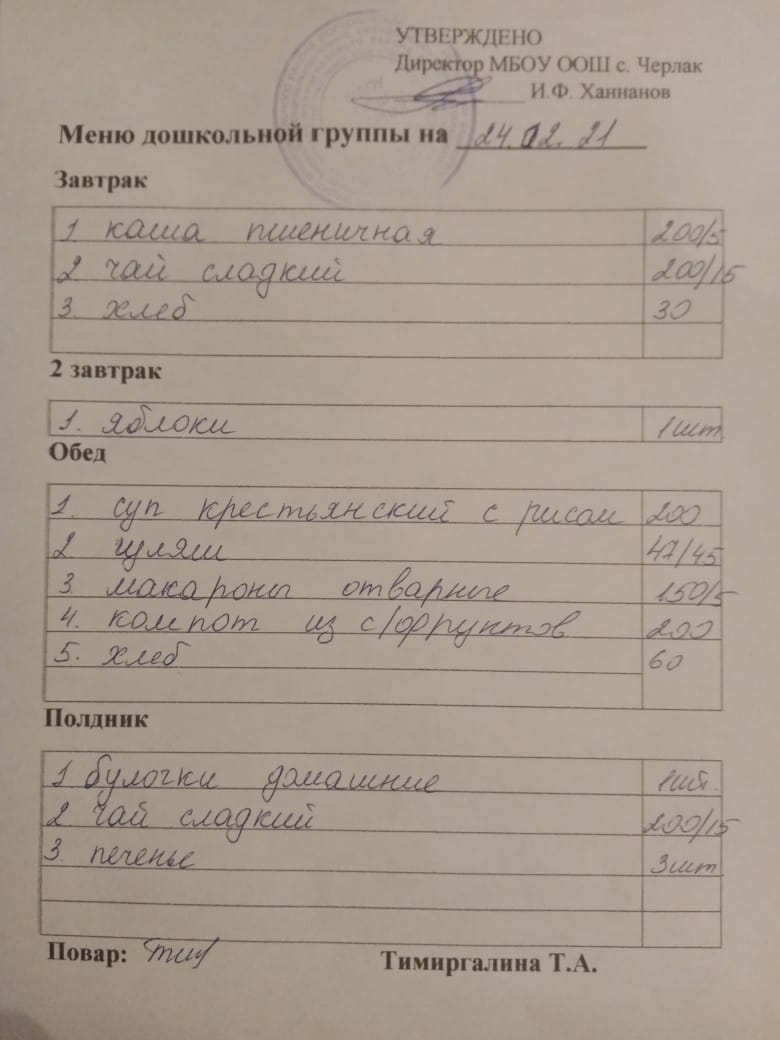 УТВЕРЖДЕНО
Директор МБОУ ООШ с. Черлак
И.Ф. Ханнанов
Меню дошкольной группы на 24.02.21
Завтрак
1 каша пшеничная 200/5
2 чай сладкий 200/15
3. хлеб 30
2 завтрак
1. яблоки 1шт
Обед
1. суп крестьянский с рисом 200
2 гуляш 47/45
3 макароны отварные 150/5
4. компот из с/фруктов 200
5. хлеб 60
Полдник
1 булочки домашние 1шт.
2 чай сладкий 200/15
3. печенье 3шт
Повар: Тимиргалина Т.А.